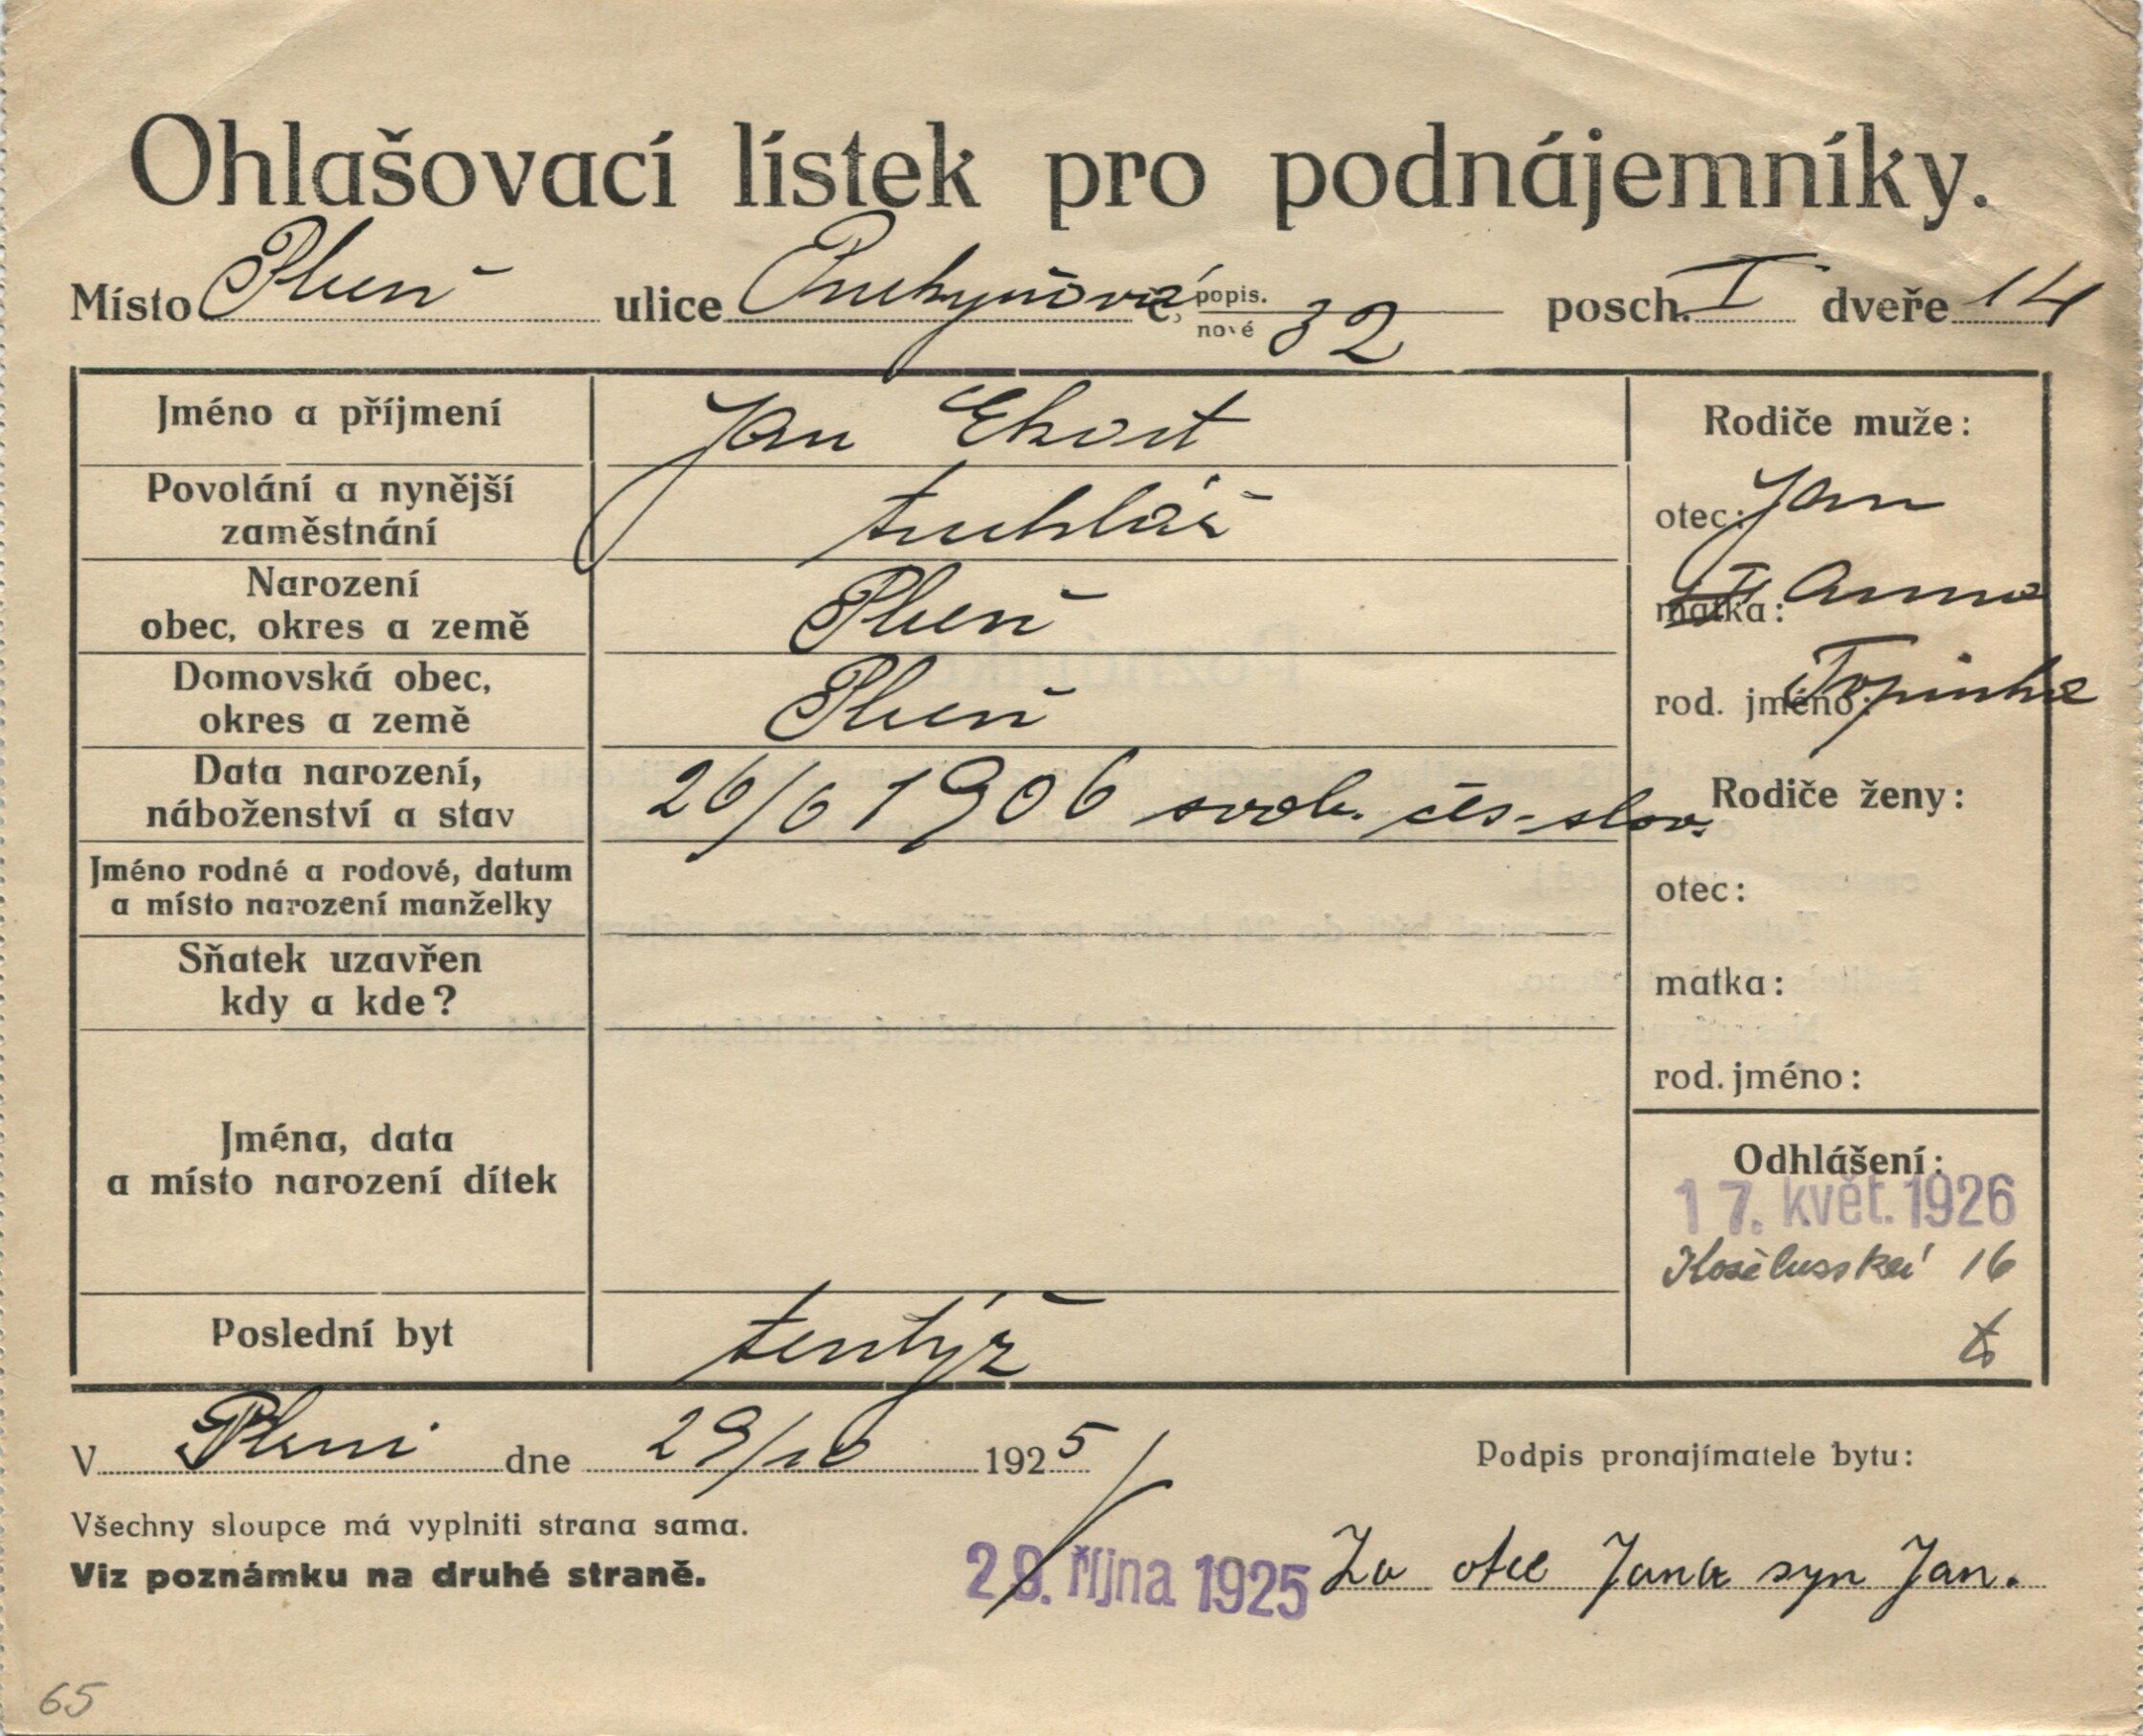 Ohlašovací lístek pro podnájemníky.
Místo Plzeň ulice Purkyňová č. popis. nové 32 posch. I dveře 14
Jméno a příjmení Jan Ekort
Povolání a nynější zaměstnání truhlář
Narození obec, okres a země Plzeň
Domovská obec, okres a země Plzeň
Data narození, náboženství a stav 26/6 1906 svob. čes.-slov.
Jméno rodné a rodové, datum a místo narození manželky
Sňatek uzavřen kdy a kde?
Jména, data a místo narození dítek
Poslední byt tentýž
Rodiče muže:
otec: Jan
matka: Anna
rod. jméno: Topinka
Rodiče ženy:
otec:
matka:
rod. jméno:
Odhlášení:
17. květ. 1926
Koželužská 16
V Plzni dne 29/10 1925
Podpis pronajímatele bytu:
Všechny sloupce má vyplniti strana sama.
Viz poznámku na druhé straně.
29. října 1925 Za otce Jana syn Jan.
65